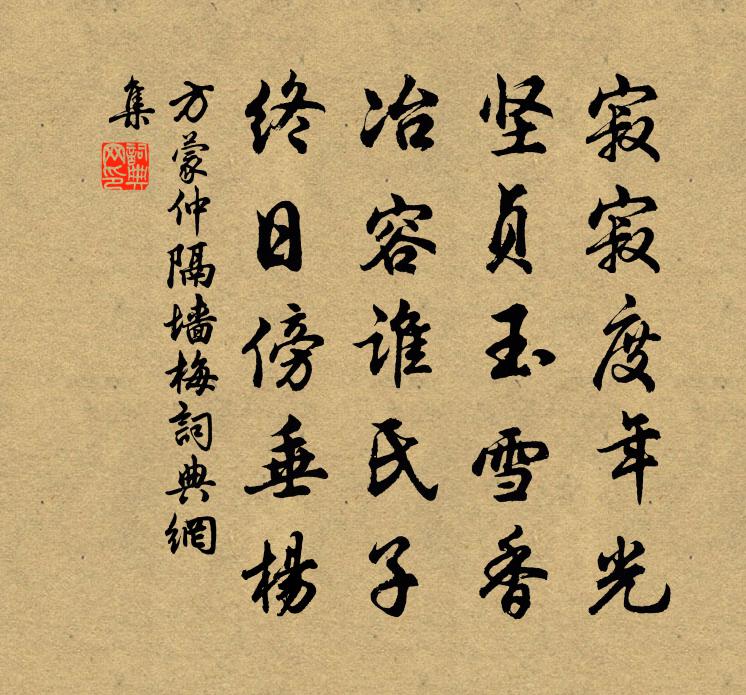 寂寂度年光
坚贞玉雪香
冶容谁氏子
终日傍垂杨
方蒙仲隔墙梅詞典網
集
詞典
网印